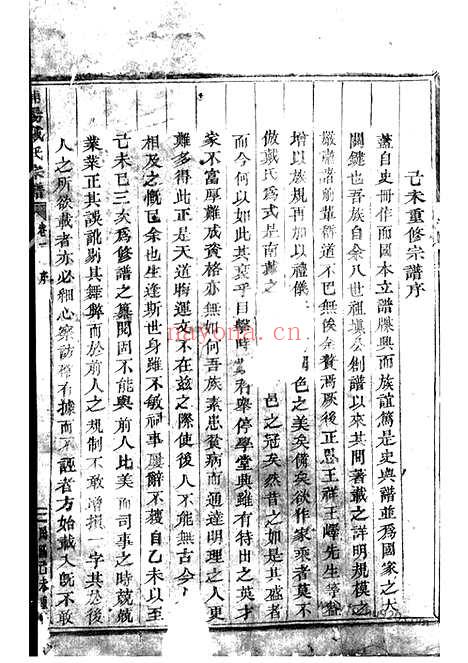 己未重修宗譜序
蓋自史冊作而國本立譜牒興而族誼篤是史與譜並爲國家之大
關鍵也吾族自余八世祖塤及創譜以來其間著載之詳明規模之
嚴肅諸前輩僃道不巳無俟余贅馮厥後正思王祥王嶧先生等
增以族規再加以禮儀 色之美矣備矣欲作家乘者莫不
倣戴氏爲式是南 邑之冠矣然昔之如是其盛者
而今何以如此其衰乎目擊時 有舉停學堂典雖有特出之英才
家不富厚難成資格亦無如何吾族素患貧病而通達明理之人更
難多得此正是天道晦運文不在茲之際使後人不能無古今
相及之慨巳余也生逢斯世身雖不敏祠事屢辭不獲自乙未以至
己未巳三次爲修譜之纂閱固不能與前人比美而司事之時兢兢
業業正其誤訛剔其舞弊而於前人之規制不敢增損一字其於後
人之所欲載者亦必細心察訪確有據而不誣者方始載入旣不敢
戴氏宗譜 卷一 序
nayona.cn